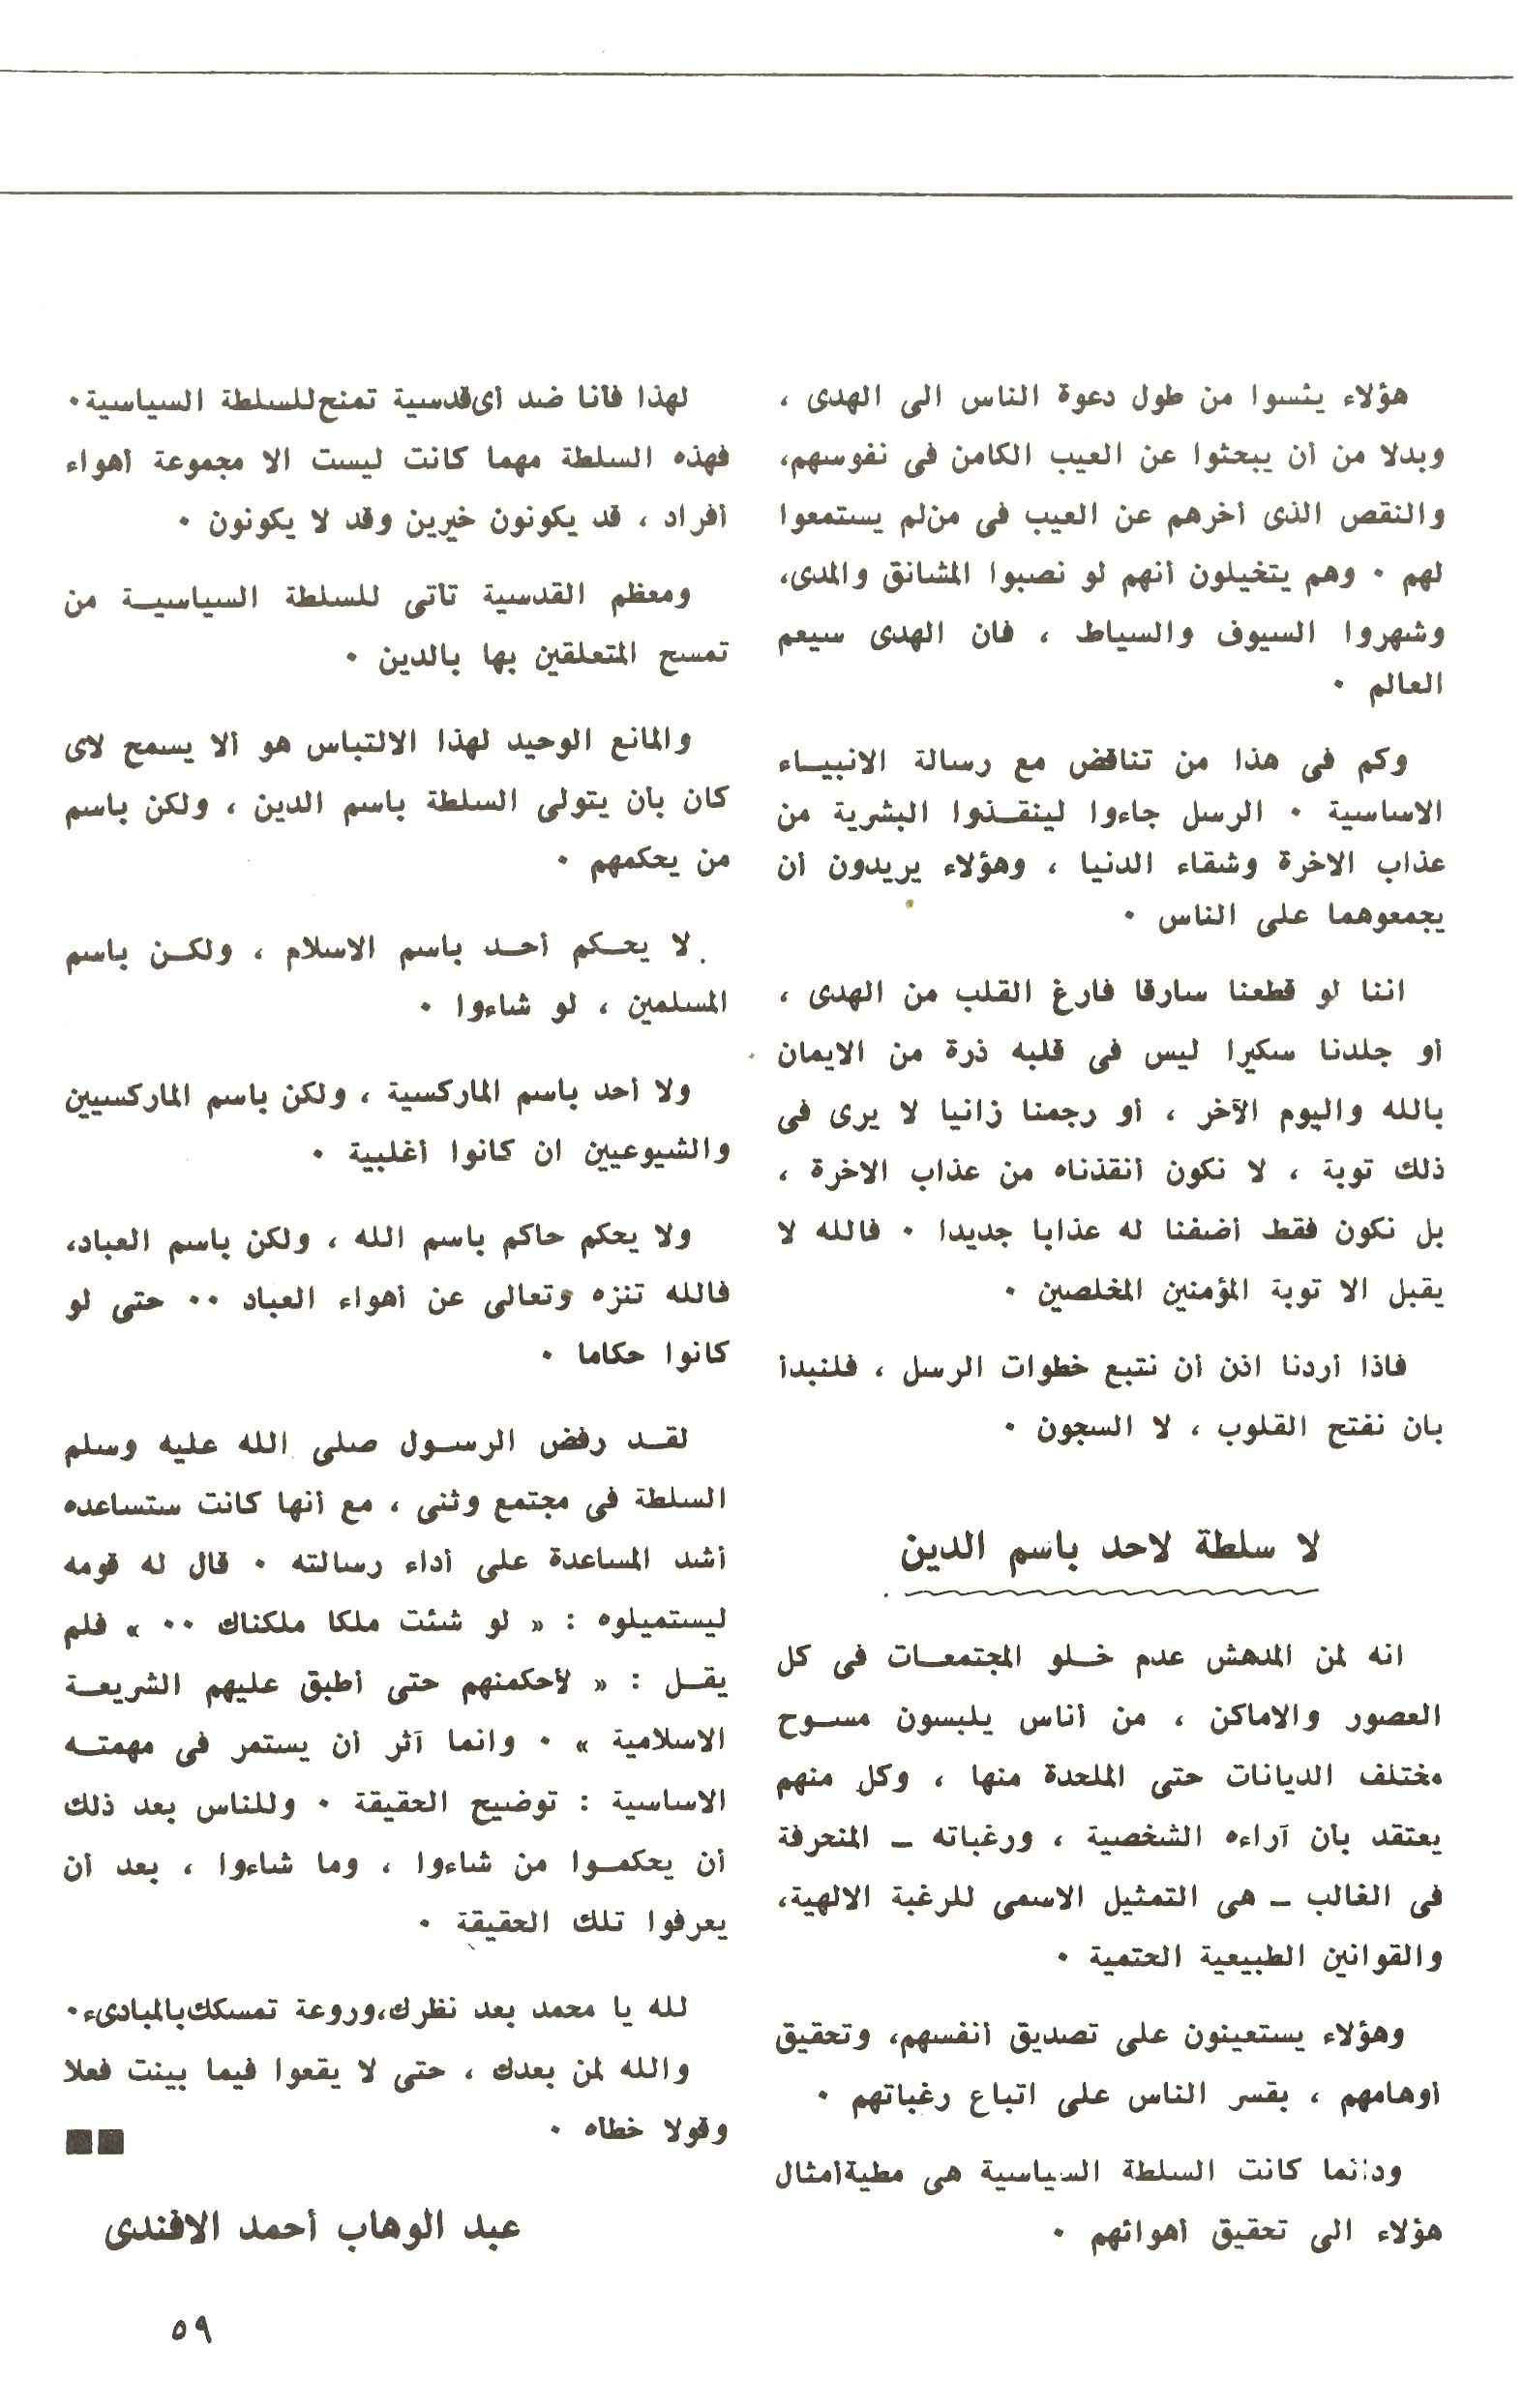 هؤلاء يئسوا من طول دعوة الناس الى الهدى ،
وبدلا من أن يبحثوا عن العيب الكامن فى نفوسهم،
والنقص الذى أخرهم عن العيب فى من لم يستمعوا
لهم ٠ وهم يتخيلون أنهم لو نصبوا المشانق والمدى،
وشهروا السيوف والسياط ، فان الهدى سيعم
العالم ٠
وكم فى هذا من تناقض مع رسالة الانبياء
الاساسية ٠ الرسل جاءوا لينقذوا البشرية من
عذاب الاخرة وشقاء الدنيا ، وهؤلاء يريدون أن
يجمعوهما على الناس ٠
اننا لو قطعنا سارقا فارغ القلب من الهدى ،
أو جلدنا سكيرا ليس فى قلبه ذرة من الايمان
بالله واليوم الآخر ، أو رجمنا زانيا لا يرى فى
ذلك توبة ، لا نكون أنقذناه من عذاب الاخرة ،
بل نكون فقط أضفنا له عذابا جديدا ٠ فالله لا
يقبل الا توبة المؤمنين المخلصين ٠
فاذا أردنا اذن أن نتبع خطوات الرسل ، فلنبدأ
بان نفتح القلوب ، لا السجون ٠
لا سلطة لاحد باسم الدين
انه لمن المدهش عدم خلو المجتمعات فى كل
العصور والاماكن ، من أناس يلبسون مسوح
مختلف الديانات حتى الملحدة منها ، وكل منهم
يعتقد بأن آراءه الشخصية ، ورغباته ــ المنحرفة
فى الغالب ــ هى التمثيل الاسمى للرغبة الالهية،
والقوانين الطبيعية الحتمية ٠
وهؤلاء يستعينون على تصديق أنفسهم، وتحقيق
أوهامهم ، بقسر الناس على اتباع رغباتهم ٠
ودائما كانت السلطة السياسية هى مطية أمثال
هؤلاء الى تحقيق أهوائهم ٠
لهذا فأنا ضد أى قدسية تمنح للسلطة السياسية٠
فهذه السلطة مهما كانت ليست الا مجموعة أهواء
أفراد ، قد يكونون خيرين وقد لا يكونون ٠
ومعظم القدسية تأتى للسلطة السياسية من
تمسح المتعلقين بها بالدين ٠
والمانع الوحيد لهذا الالتباس هو ألا يسمح لاى
كان بأن يتولى السلطة باسم الدين ، ولكن باسم
من يحكمهم ٠
لا يحكم أحد باسم الاسلام ، ولكن باسم
المسلمين ، لو شاءوا ٠
ولا أحد باسم الماركسية ، ولكن باسم الماركسيين
والشيوعيين ان كانوا أغلبية ٠
ولا يحكم حاكم باسم الله ، ولكن باسم العباد،
فالله تنزه وتعالى عن أهواء العباد ٠٠ حتى لو
كانوا حكاما ٠
لقد رفض الرسول صلى الله عليه وسلم
السلطة فى مجتمع وثنى ، مع أنها كانت ستساعده
أشد المساعدة على أداء رسالته ٠ قال له قومه
ليستميلوه : « لو شئت ملكا ملكناك ٠٠ » فلم
يقل : « لأحكمنهم حتى أطبق عليهم الشريعة
الاسلامية » ٠ وانما آثر أن يستمر فى مهمته
الاساسية : توضيح الحقيقة ٠ وللناس بعد ذلك
أن يحكموا من شاءوا ، وما شاءوا ، بعد أن
يعرفوا تلك الحقيقة ٠
لله يا محمد بعد نظرك،وروعة تمسكك بالمبادىء٠
والله لمن بعدك ، حتى لا يقعوا فيما بينت فعلا
وقولا خطأه ٠
عبد الوهاب أحمد الافندى
٥٩